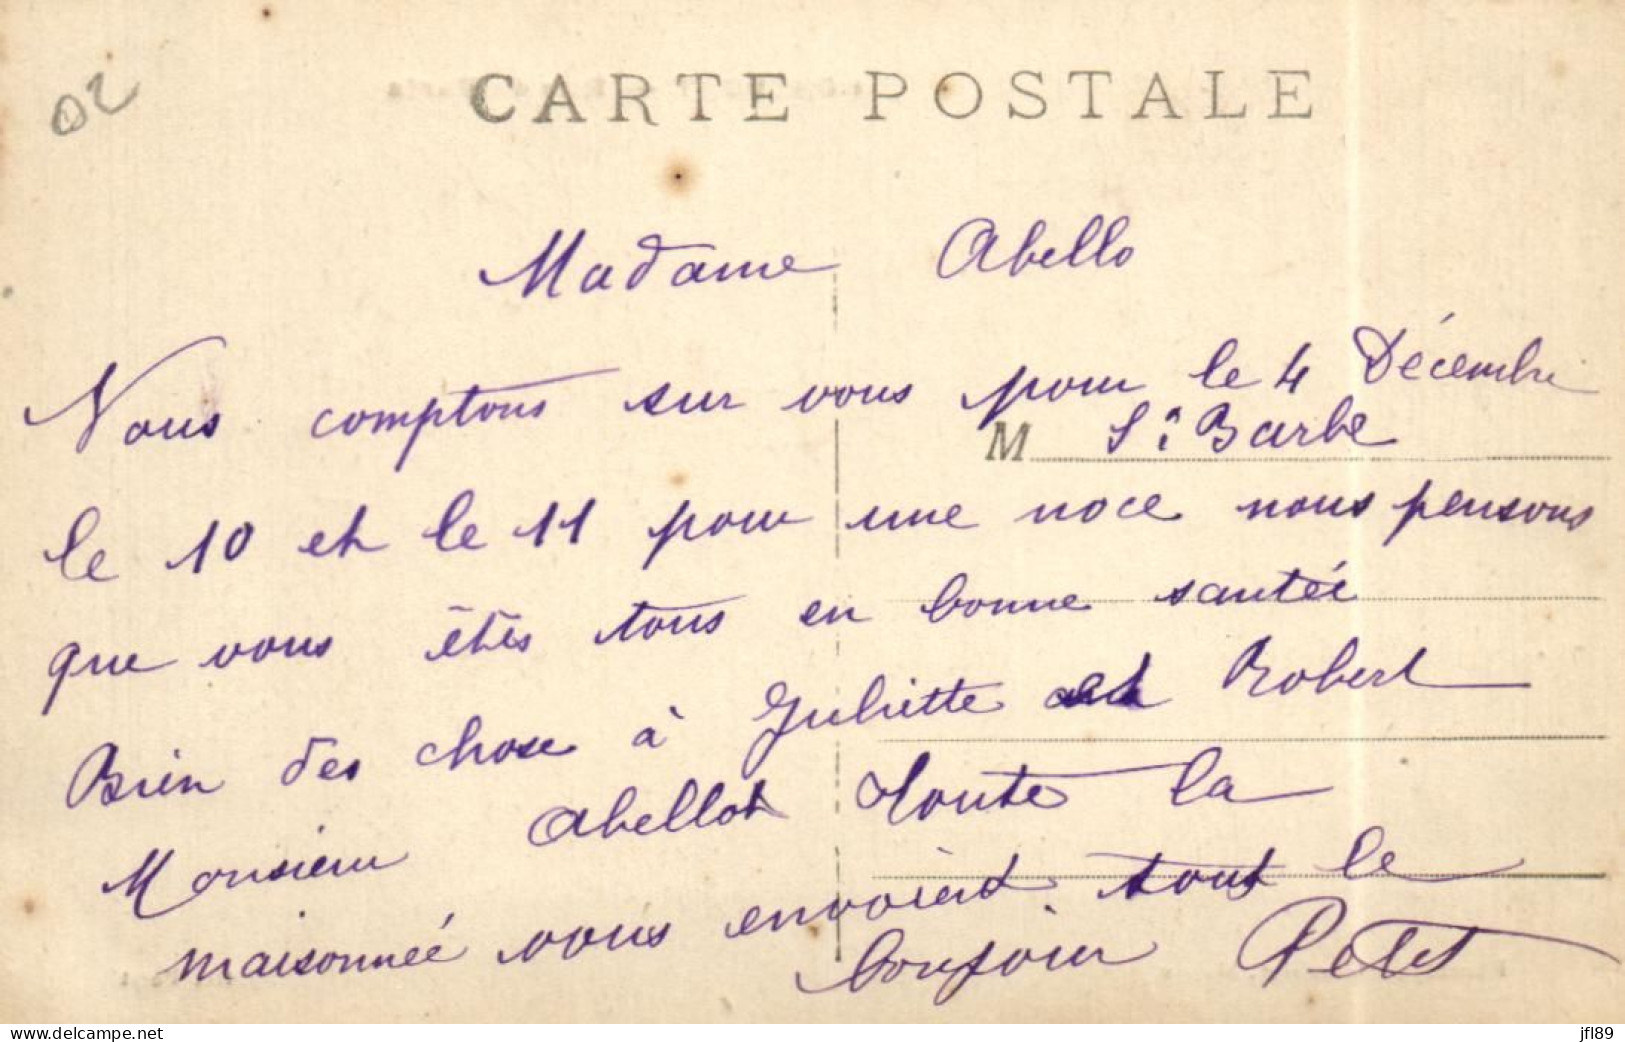 02
CARTE POSTALE
Madame Abello
Nous comptons sur vous pour le 4 Décembre
M St Barbe
le 10 et le 11 pour une noce nous pensons
que vous êtes tous en bonne santée
Bien des chose à Juliette et Robert
Monsieur Abellot toute la
maisonnée vous envoient tout le
bonjour Petit
www.delcampe.net
jfl89